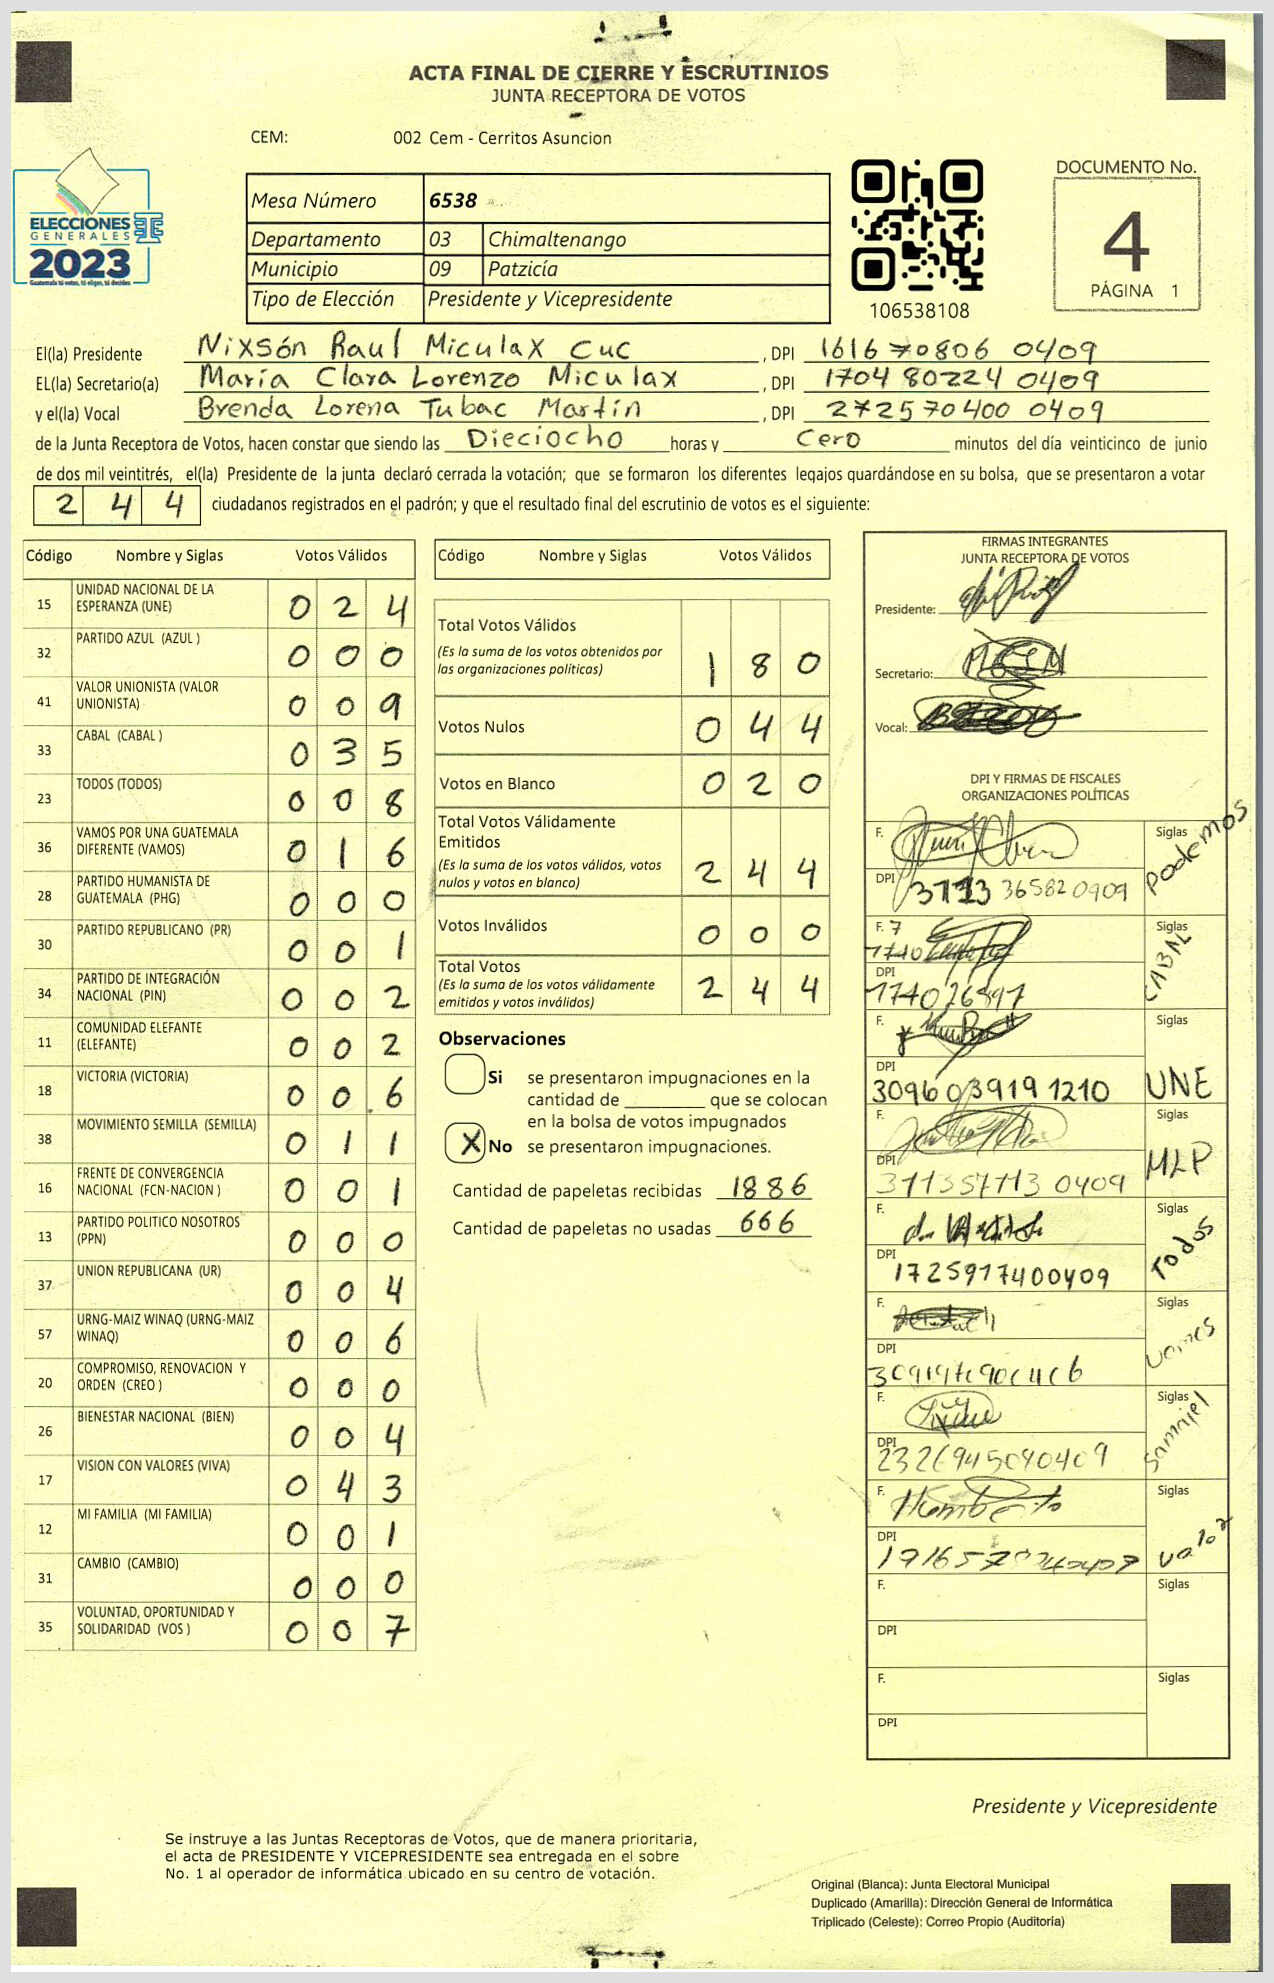 ACTA FINAL DE CIERRE Y ESCRUTINIOS
JUNTA RECEPTORA DE VOTOS
CEM: 002 Cem - Cerritos Asuncion
ELECCIONES
GENERALES
2023
Guatemala tú votas, tú eliges, tú decides
Mesa Número 6538
Departamento 03 Chimaltenango
Municipio 09 Patzicía
Tipo de Elección Presidente y Vicepresidente
106538108
DOCUMENTO No.
4
PÁGINA 1
El(la) Presidente Nixsón Raul Miculax Cuc , DPI 1616 70806 0409
EL(la) Secretario(a) María Clara Lorenzo Miculax , DPI 1704 80224 0409
y el(la) Vocal Brenda Lorena Tubac Martín , DPI 2725 70400 0409
de la Junta Receptora de Votos, hacen constar que siendo las Dieciocho horas y Cero minutos del día veinticinco de junio
de dos mil veintitrés, el(la) Presidente de la junta declaró cerrada la votación; que se formaron los diferentes legajos guardándose en su bolsa, que se presentaron a votar
2 4 4 ciudadanos registrados en el padrón; y que el resultado final del escrutinio de votos es el siguiente:
Código Nombre y Siglas Votos Válidos
15 UNIDAD NACIONAL DE LA ESPERANZA (UNE) 0 2 4
32 PARTIDO AZUL (AZUL ) 0 0 0
41 VALOR UNIONISTA (VALOR UNIONISTA) 0 0 9
33 CABAL (CABAL ) 0 3 5
23 TODOS (TODOS) 0 0 8
36 VAMOS POR UNA GUATEMALA DIFERENTE (VAMOS) 0 1 6
28 PARTIDO HUMANISTA DE GUATEMALA (PHG) 0 0 0
30 PARTIDO REPUBLICANO (PR) 0 0 1
34 PARTIDO DE INTEGRACIÓN NACIONAL (PIN) 0 0 2
11 COMUNIDAD ELEFANTE (ELEFANTE) 0 0 2
18 VICTORIA (VICTORIA) 0 0 6
38 MOVIMIENTO SEMILLA (SEMILLA) 0 1 1
16 FRENTE DE CONVERGENCIA NACIONAL (FCN-NACION ) 0 0 1
13 PARTIDO POLITICO NOSOTROS (PPN) 0 0 0
37 UNION REPUBLICANA (UR) 0 0 4
57 URNG-MAIZ WINAQ (URNG-MAIZ WINAQ) 0 0 6
20 COMPROMISO, RENOVACION Y ORDEN (CREO ) 0 0 0
26 BIENESTAR NACIONAL (BIEN) 0 0 4
17 VISION CON VALORES (VIVA) 0 4 3
12 MI FAMILIA (MI FAMILIA) 0 0 1
31 CAMBIO (CAMBIO) 0 0 0
35 VOLUNTAD, OPORTUNIDAD Y SOLIDARIDAD (VOS ) 0 0 7
Código Nombre y Siglas Votos Válidos
Total Votos Válidos 1 8 0
(Es la suma de los votos obtenidos por
las organizaciones políticas)
Votos Nulos 0 4 4
Votos en Blanco 0 2 0
Total Votos Válidamente
Emitidos 2 4 4
(Es la suma de los votos válidos, votos
nulos y votos en blanco)
Votos Inválidos 0 0 0
Total Votos
(Es la suma de los votos válidamente
emitidos y votos inválidos) 2 4 4
Observaciones
Si se presentaron impugnaciones en la
cantidad de ________ que se colocan
en la bolsa de votos impugnados
X No se presentaron impugnaciones.
Cantidad de papeletas recibidas 1886
Cantidad de papeletas no usadas 666
FIRMAS INTEGRANTES
JUNTA RECEPTORA DE VOTOS
Presidente:
Secretario:
Vocal:
DPI Y FIRMAS DE FISCALES
ORGANIZACIONES POLÍTICAS
F. Siglas Podemos
DPI
F. Siglas CABAL
DPI
F. Siglas UNE
DPI 3096039191210
F. Siglas MLP
DPI
F. Siglas Todos
DPI 1725917400409
F. Siglas vamos
DPI
F. Siglas
DPI
F. Siglas valor
DPI
F. Siglas
DPI
F. Siglas
DPI
Presidente y Vicepresidente
Se instruye a las Juntas Receptoras de Votos, que de manera prioritaria,
el acta de PRESIDENTE Y VICEPRESIDENTE sea entregada en el sobre
No. 1 al operador de informática ubicado en su centro de votación.
Original (Blanca): Junta Electoral Municipal
Duplicado (Amarilla): Dirección General de Informática
Triplicado (Celeste): Correo Propio (Auditoría)